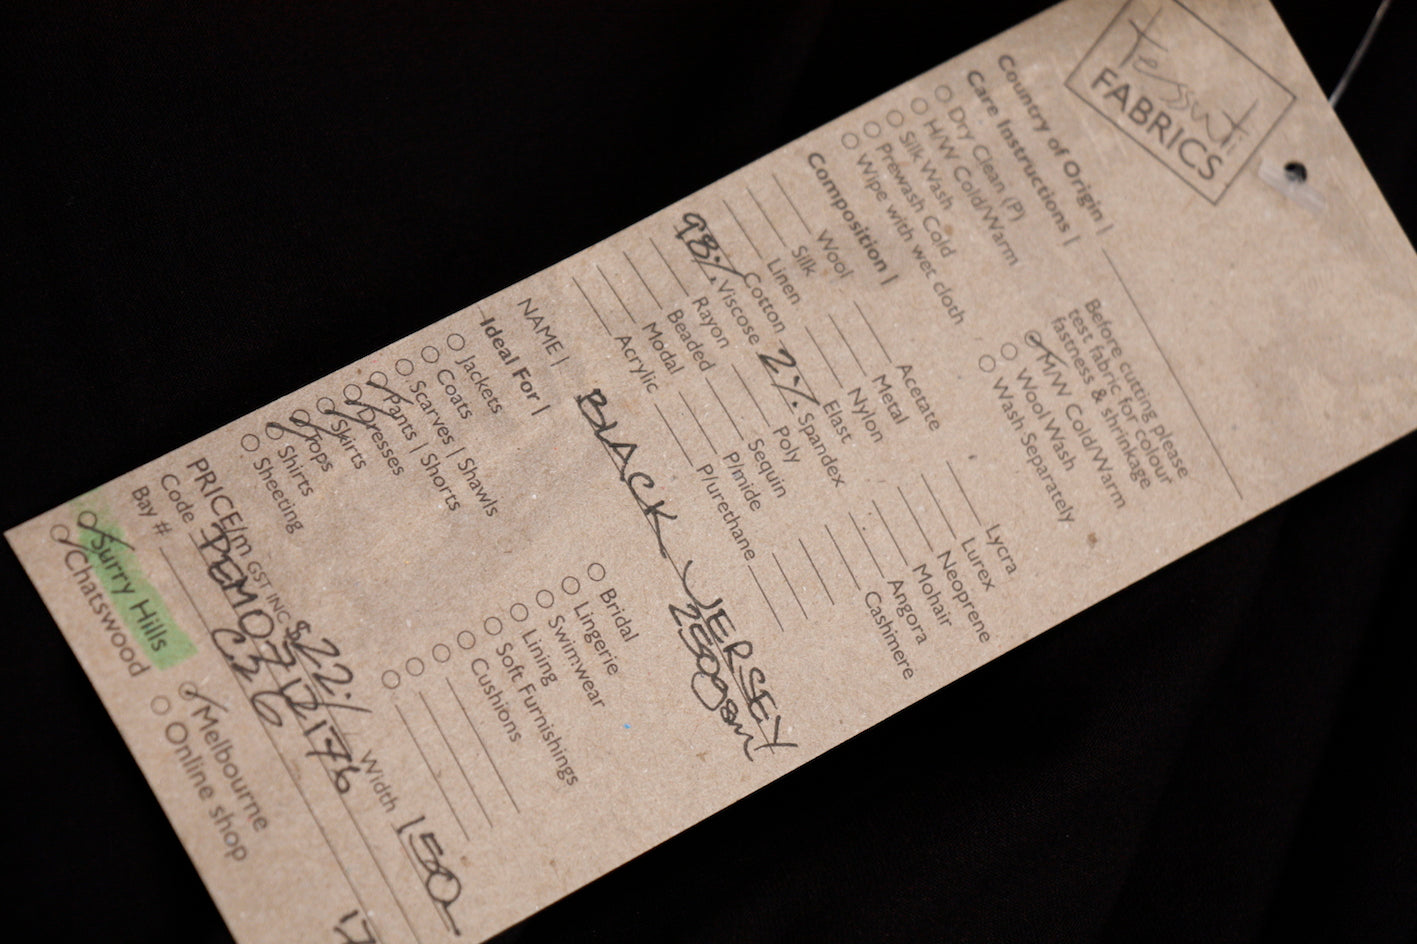 Tessuti
FABRICS
Country of Origin |
Care Instructions |
Before cutting please
test fabric for colour
fastness & shrinkage
Dry Clean (P)
H/W Cold/Warm
Silk Wash
Prewash Cold
Wipe with wet cloth
M/W Cold/Warm
Wool Wash
Wash Separately
Composition |
Wool
Silk
Linen
Cotton
98% Viscose
Rayon
Beaded
Modal
Acrylic
Acetate
Metal
Nylon
Elast
2% Spandex
Poly
Sequin
P/mide
P/urethane
Lycra
Lurex
Neoprene
Mohair
Angora
Cashmere
NAME | BLACK JERSEY
250gsm
Ideal For |
Jackets
Coats
Scarves | Shawls
Pants | Shorts
Dresses
Skirts
Tops
Shirts
Sheeting
Bridal
Lingerie
Swimwear
Lining
Soft Furnishings
Cushions
PRICE/m GST INC $22 Width 150
Code
Bay # C36
Surry Hills
Chatswood
Melbourne
Online shop